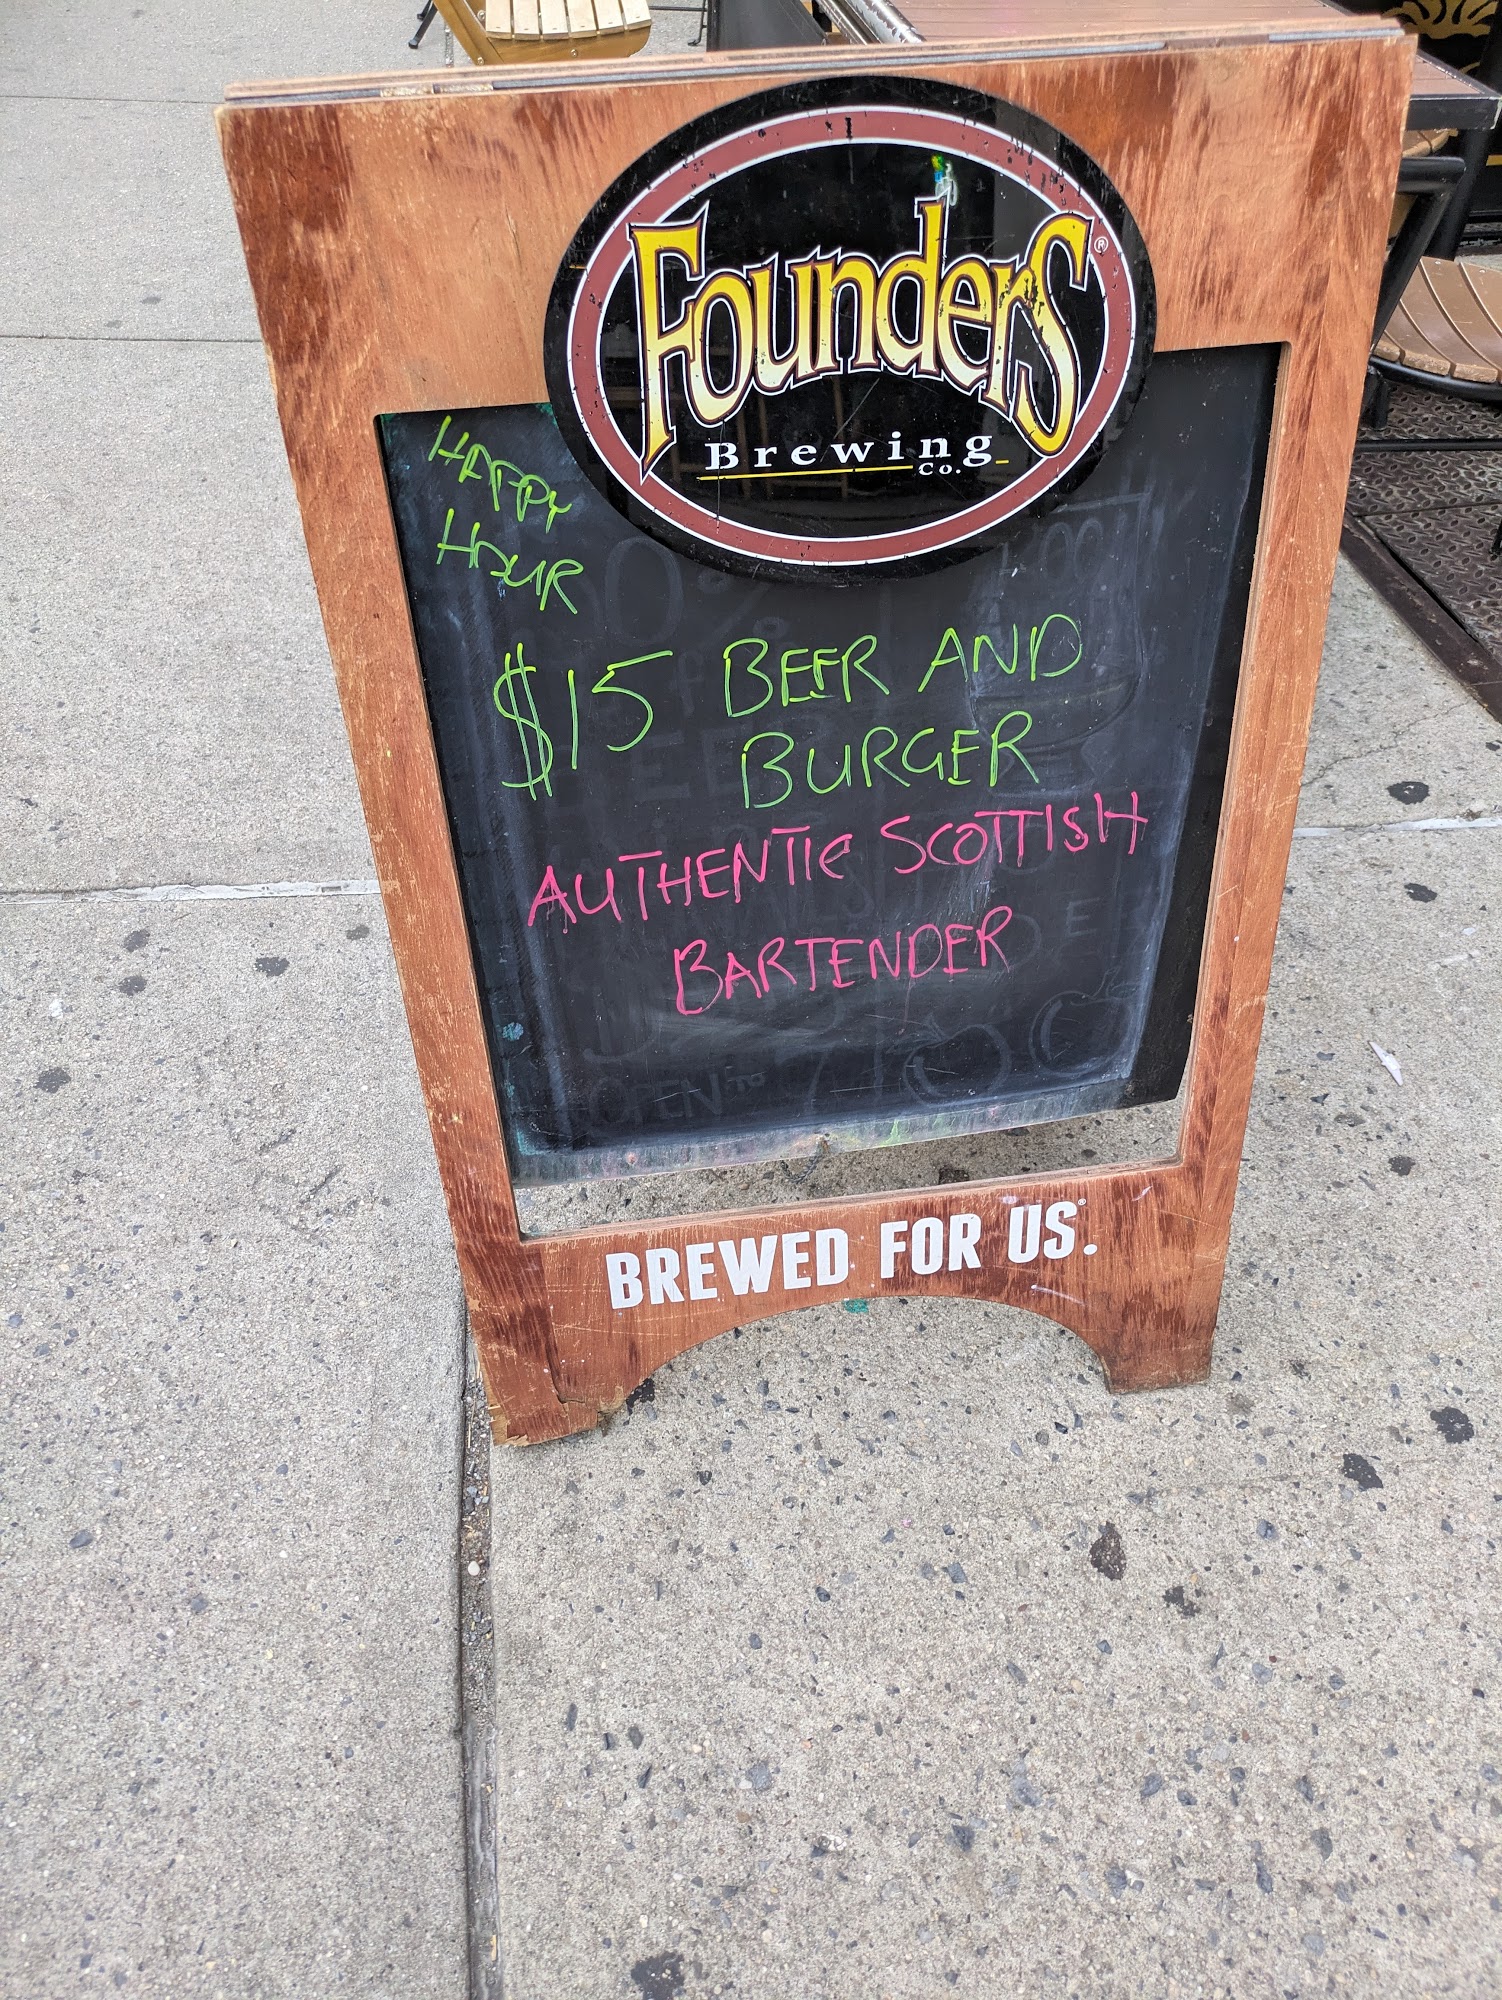 Founders®
Brewing
Co.
HAPPY
HOUR
$15 BEER AND
BURGER
AUTHENTIC SCOTTISH
BARTENDER
OPEN TO
BREWED FOR US.